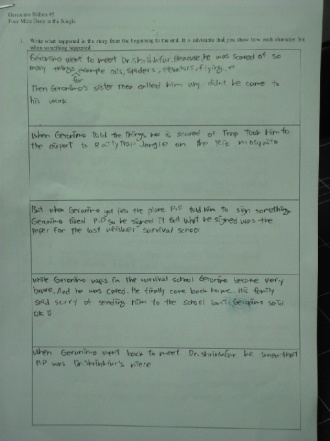 Geronimo Stilton #5
Four Mice Deep in the Jungle
1. Write what happened in the story from the beginning to the end. It is advisable that you show how each character felt
when something happened.
Geronimo went to meet Dr.shrinkfur. Because he was scared of so
many things, for example cats, spiders, elevators, flying.
Then Geronimo's sister Thea called him why didn't he come to
his work
When Geronimo told the things he is scared of Trap Took him to
the airport to Ratty Trap Jungle on the Rio mosquito
But when Geronimo got into the plane P.P told him to sign something.
Geronimo liked P.P so he signed it But what he signed was the
paper for the last whisker survival school
While Geronimo was in the survival school Geronimo become very
brave. And he was cured. He finally come back home. His family
said sorry of sending him to the school but Geronimo said
ok
When Geronimo went back to meet Dr.shrinkfur he knew that
P.P was Dr.shrinkfur's niece